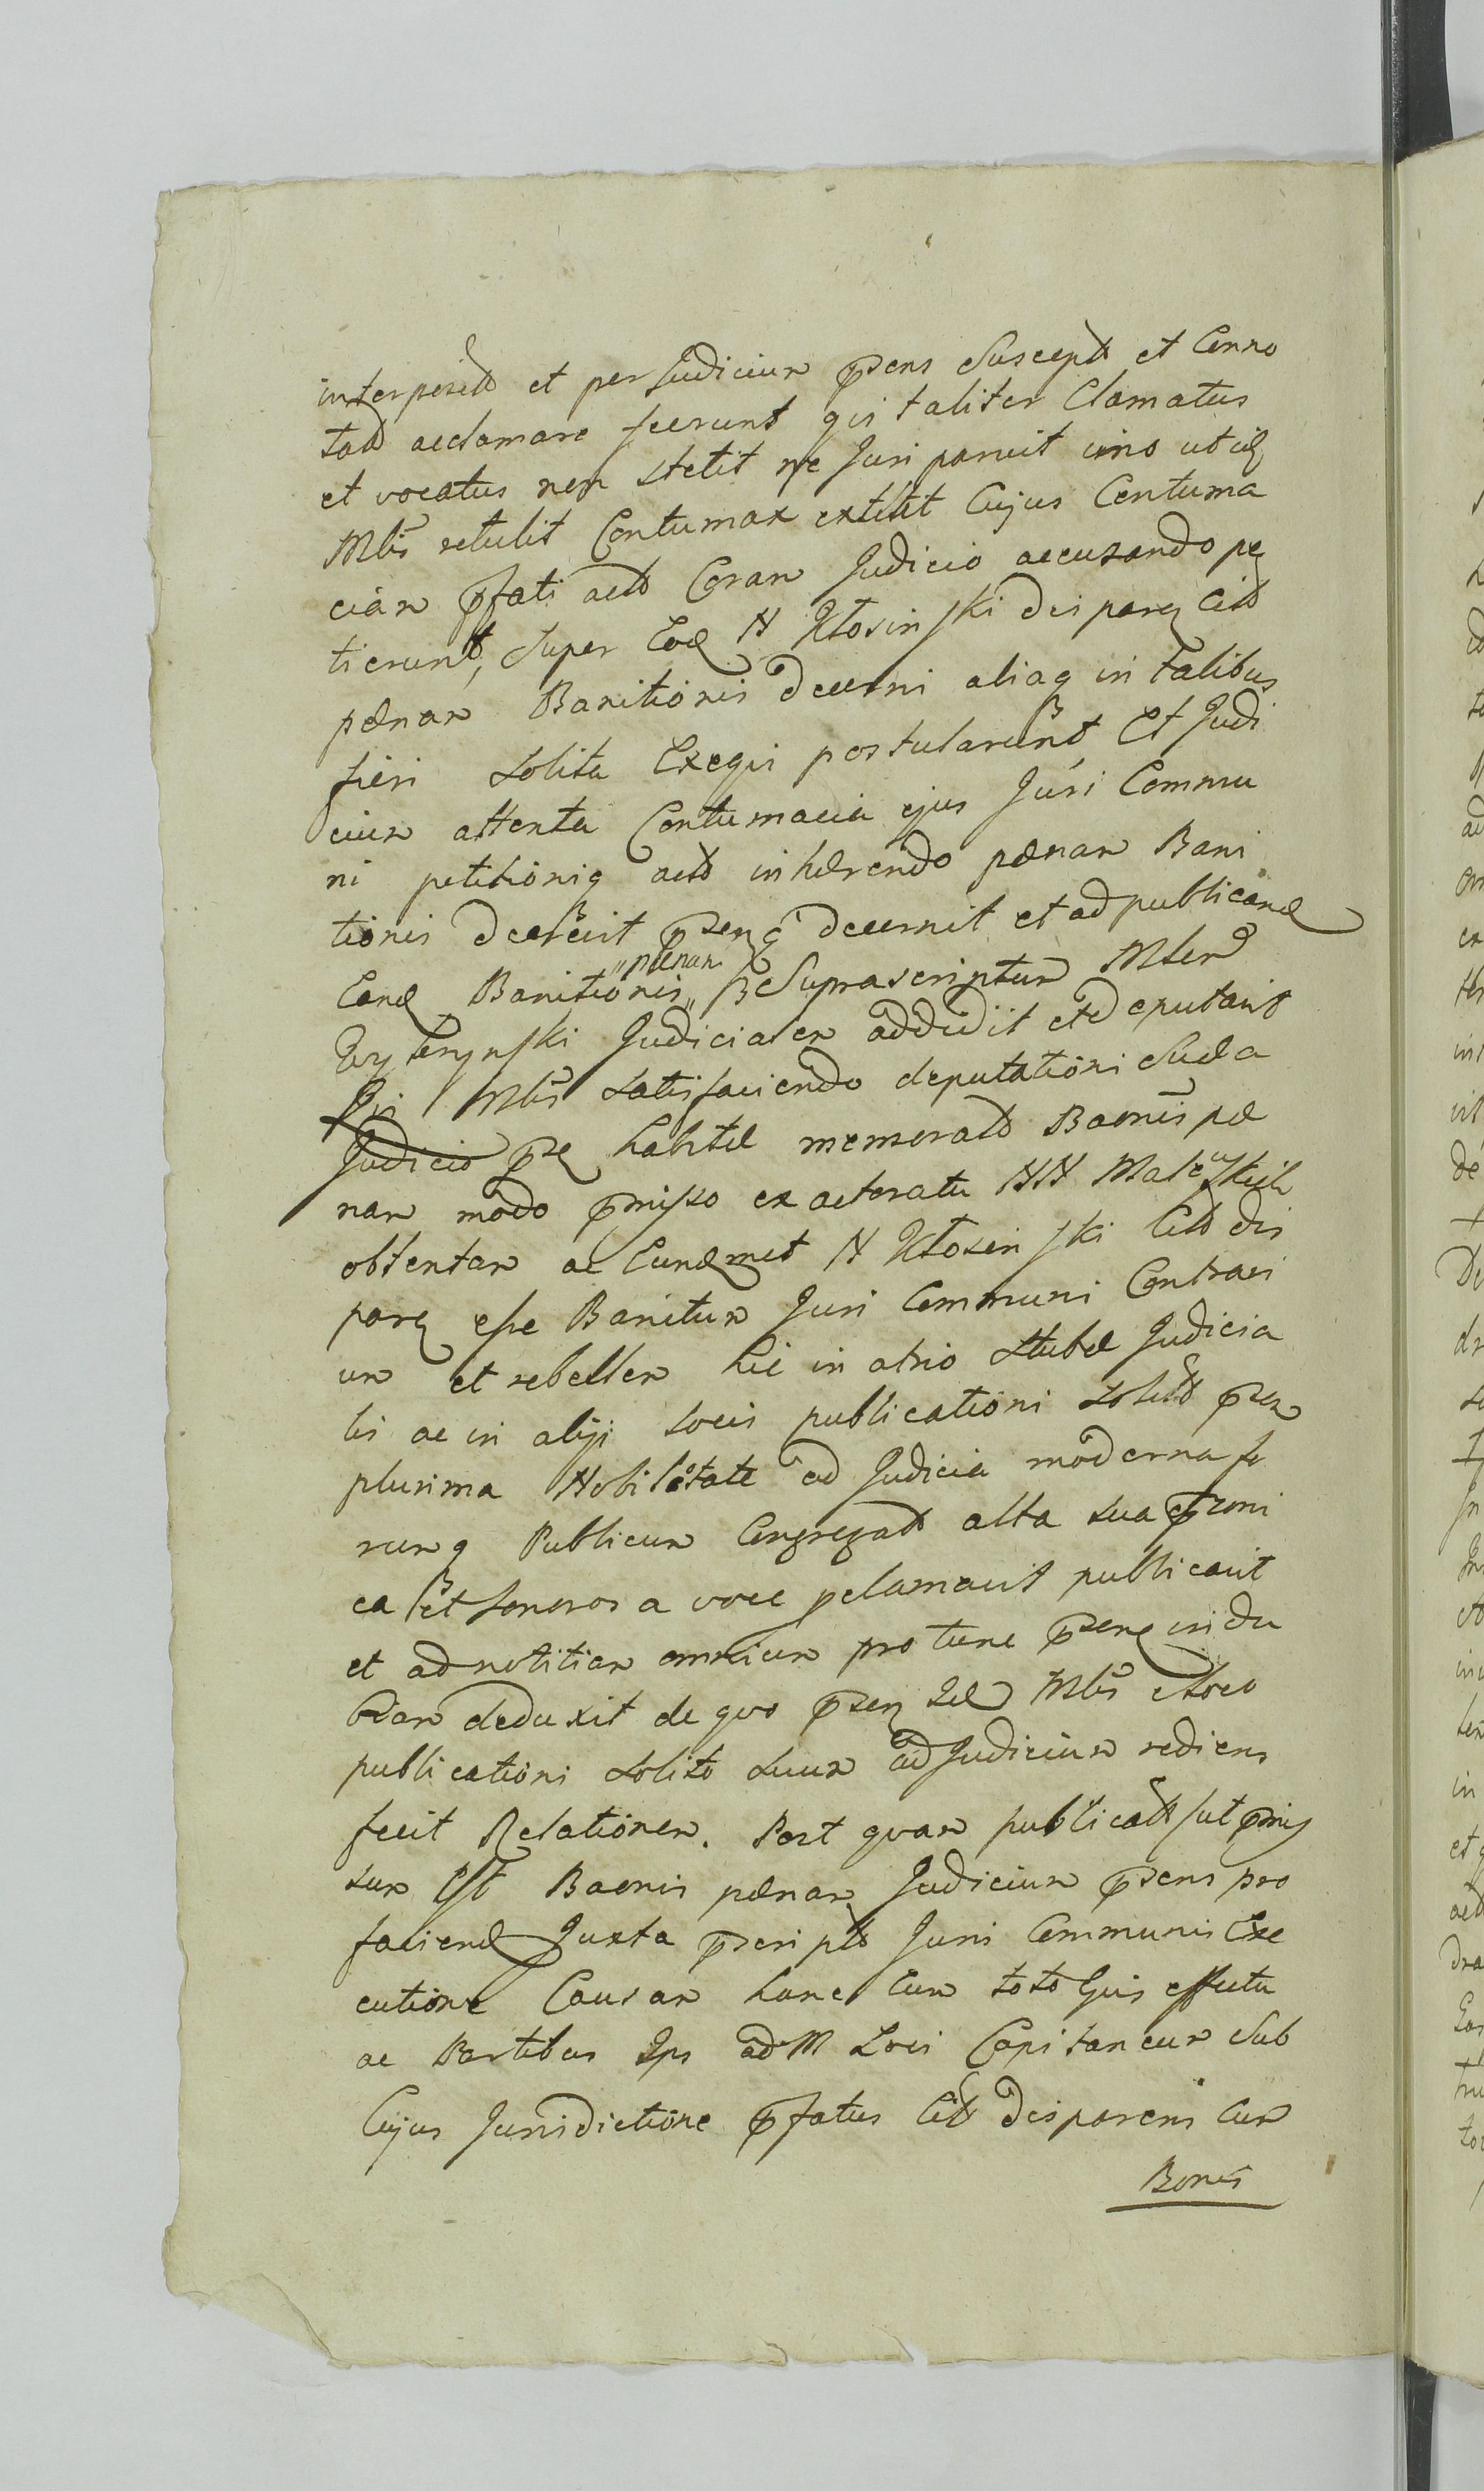 interposit et per Judicium pñsens Suscept et Conno
tat acclamare fecerunt qui taliter Clamatus
et vocatus non stetit nec Juri paruit imo ut id
Mlis retulit Contumax extitit Cujus Contuma
ciam pfati act Coram Judicio accusando pe
tierunt, Super Eod N Kłosinski dispare Cit
pænam Banitionis decerni aliaq in talibus
fieri Solita Exequi postularunt, Et Judi
cium attenta Contumacia ejus Juri Commu
ni petitioniq act inhærendo pænam Bani
tionis decrevit psensq decernit et ad publicand
Eand Banitionis „pænam„ Suprascriptum Mlem
Judicialem addidit et deputavit
Qui Mlis Satisfaciendo deputationi Suæ a
Judicio pse habitæ memorat Baonis pæ
nam modo pmisso ex actoratu NN
obtentam ac Eundmet N Kłosinski Cit dis
pare esse Banitum Juri Communi Contrari
um et rebellem hic in atrio Stubæ Judicia
lis ac in alijs locis publicationi Solit psen
plurima Nobilitate ad Judicia moderna fo
rumq Publicum Congregat alta sua
ca et Sonorosa voce pclamavit publicavit
et ad notitiam omnium pro tunc psen indu
biam deduxit de quo psen Id Mlis e loco
publicationi Solito suum ad Judicium rediens
fecit Relationem. Post quam publicat ut pmis
sum Est Baonis pænam Judicium psens pro
faciend Juxta pscript Juris Communis Exe
cutione Causam hanc Cum toto Ejus effectu
ac Partibus Ips ad M Loci Capitaneum Sub
Cujus Jurisdictione pfatus Cit disparens Cum
Bonis